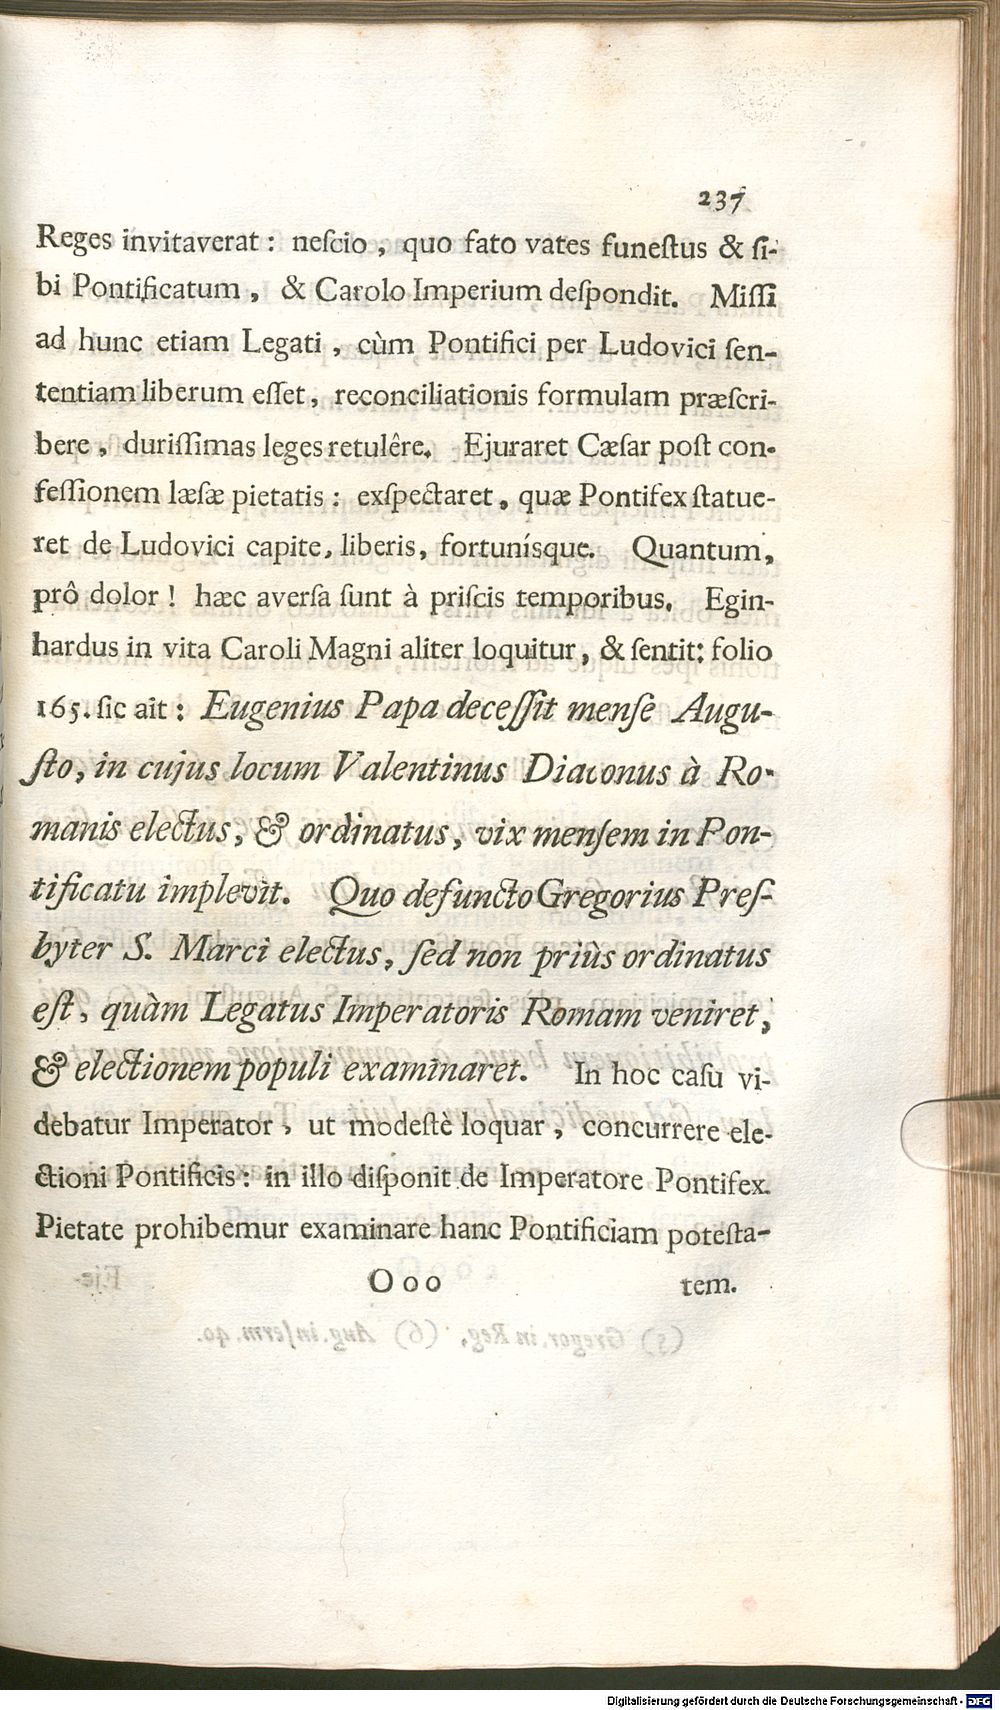 237
Reges invitaverat: neſcio, quo fato vates funeſtus & ſi-
bi Pontificatum, & Carolo Imperium deſpondit. Miſſi
ad hunc etiam Legati, cùm Pontifici per Ludovici ſen-
tentiam liberum eſſet, reconciliationis formulam præſcri-
bere, duriſſimas leges retulêre. Ejuraret Cæſar poſt con-
feſſionem læſæ pietatis: exſpectaret, quæ Pontifex ſtatue-
ret de Ludovici capite, liberis, fortunísque. Quantum,
prô dolor! hæc averſa ſunt à priſcis temporibus. Egin-
hardus in vita Caroli Magni aliter loquitur, & ſentit: folio
165. ſic ait: Eugenius Papa deceſſit menſe Augu-
ſto, in cujus locum Valentinus Diaconus à Ro-
manis electus, & ordinatus, vix menſem in Pon-
tificatu implevit. Quo defuncto Gregorius Preſ-
byter S. Marci electus, ſed non priùs ordinatus
eſt, quàm Legatus Imperatoris Romam veniret,
& electionem populi examinaret. In hoc caſu vi-
debatur Imperator, ut modeſtè loquar, concurrere ele-
ctioni Pontificis: in illo diſponit de Imperatore Pontifex.
Pietate prohibemur examinare hanc Pontificiam poteſta-
Ooo tem.
Digitalisierung gefördert durch die Deutsche Forschungsgemeinschaft - DFG